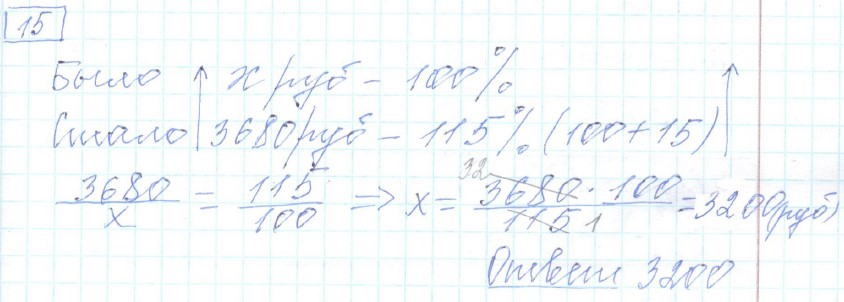 15
Было х руб – 100%
Стало 3680 руб – 115% (100+15)
3680/х = 115/100 => х = 3680 · 100/115 = 3200 (руб)
32 1
Ответ 3200